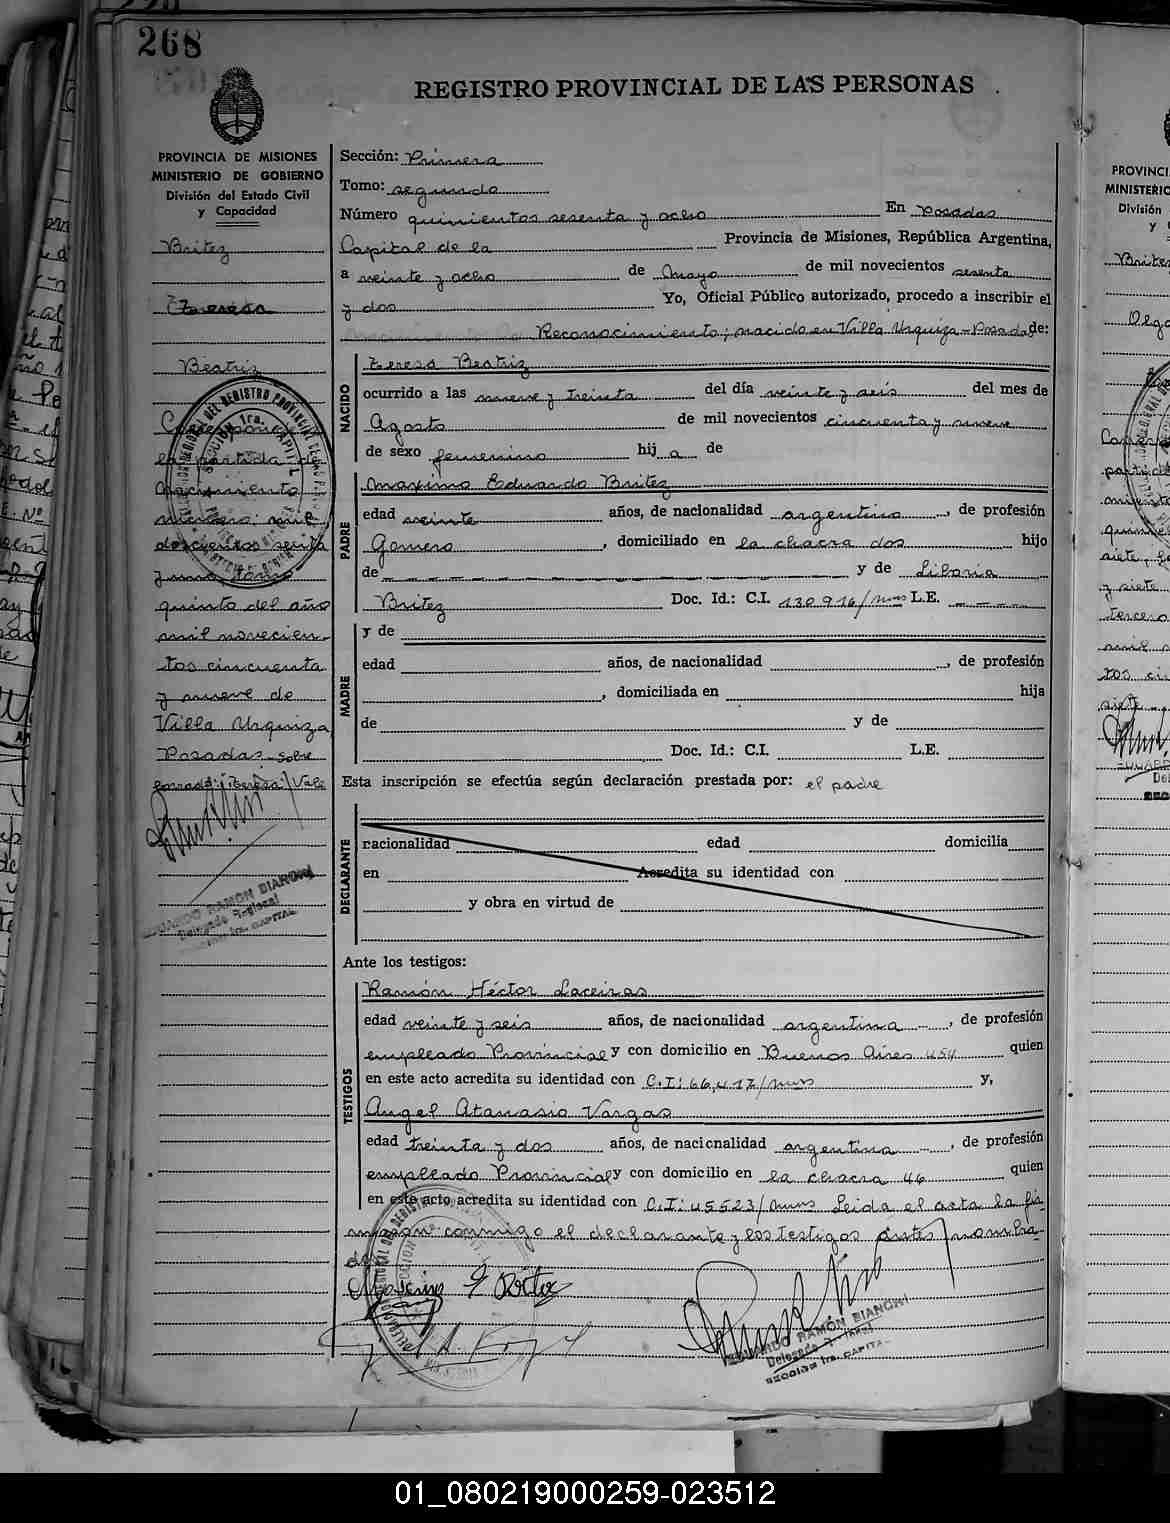 268
REGISTRO PROVINCIAL DE LAS PERSONAS
PROVINCIA DE MISIONES
MINISTERIO DE GOBIERNO
División del Estado Civil
y Capacidad
Britez
Teresa
Beatriz
Corresponde a
la partida de
nacimiento
número: mil
doscientos
y uno tomo
quinto del año
mil novecien-
tos cincuenta
y nueve de
Villa Urquiza
Posadas. Sobre
borrado: "Teresa" Vale
EDUARDO RAMÓN BIANCHI
Delegado Regional
CAPITAL
Sección: Primera
Tomo: segundo
Número quinientos sesenta y ocho En Posadas
Capital de la Provincia de Misiones, República Argentina,
a veinte y ocho de Mayo de mil novecientos sesenta
y dos Yo, Oficial Público autorizado, procedo a inscribir el
Reconocimiento; nacido en Villa Urquiza - Posadas de:
NACIDO
Teresa Beatriz
ocurrido a las nueve y treinta del día veinte y seis del mes de
Agosto de mil novecientos cincuenta y nueve
de sexo femenino hij a de
PADRE
Maximo Eduardo Britez
edad veinte años, de nacionalidad argentino, de profesión
Gomero, domiciliado en la chacra dos hijo
de _ _ _ _ _ y de Liboria
Britez Doc. Id.: C.I. 130916/mnes L.E. _ _ _ _
MADRE
y de
edad años, de nacionalidad , de profesión
, domiciliada en hija
de y de
Doc. Id.: C.I. L.E.
Esta inscripción se efectúa según declaración prestada por: el padre
DECLARANTE
nacionalidad edad domicilia
en Acredita su identidad con
y obra en virtud de
Ante los testigos:
TESTIGOS
Ramón Héctor Laceiras
edad veinte y seis años, de nacionalidad argentina, de profesión
empleado Provincial y con domicilio en Buenos Aires 454 quien
en este acto acredita su identidad con C.I: 66,417/mnes y,
Angel Atanasio Vargas
edad treinta y dos años, de nacionalidad argentina, de profesión
empleado Provincial y con domicilio en la chacra 46 quien
en este acto acredita su identidad con C.I: 45523/mnes Leida el acta la fir
maron conmigo el declarante y los testigos antes nombra-
dos
Maximo E Britez
EDUARDO RAMÓN BIANCHI
Delegado Regional
SECCION 1ra. CAPITAL
01_080219000259-023512